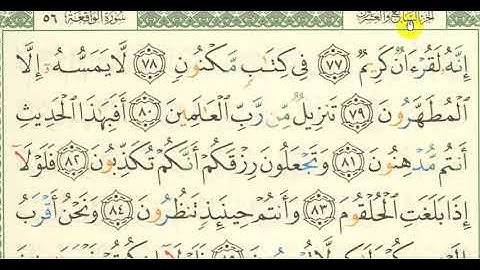 سورة الواقعة ٥٦ الجزء السابع والعشرون
إِنَّهُ لَقُرْءَانٌ كَرِيمٌ ٧٧ فِي كِتَابٍ مَّكْنُونٍ ٧٨ لَّا يَمَسُّهُ إِلَّا
الْمُطَهَّرُونَ ٧٩ تَنزِيلٌ مِّن رَّبِّ الْعَالَمِينَ ٨٠ أَفَبِهَذَا الْحَدِيثِ
أَنتُم مُّدْهِنُونَ ٨١ وَتَجْعَلُونَ رِزْقَكُمْ أَنَّكُمْ تُكَذِّبُونَ ٨٢ فَلَوْلَا
إِذَا بَلَغَتِ الْحُلْقُومَ ٨٣ وَأَنتُمْ حِينَئِذٍ تَنظُرُونَ ٨٤ وَنَحْنُ أَقْرَبُ